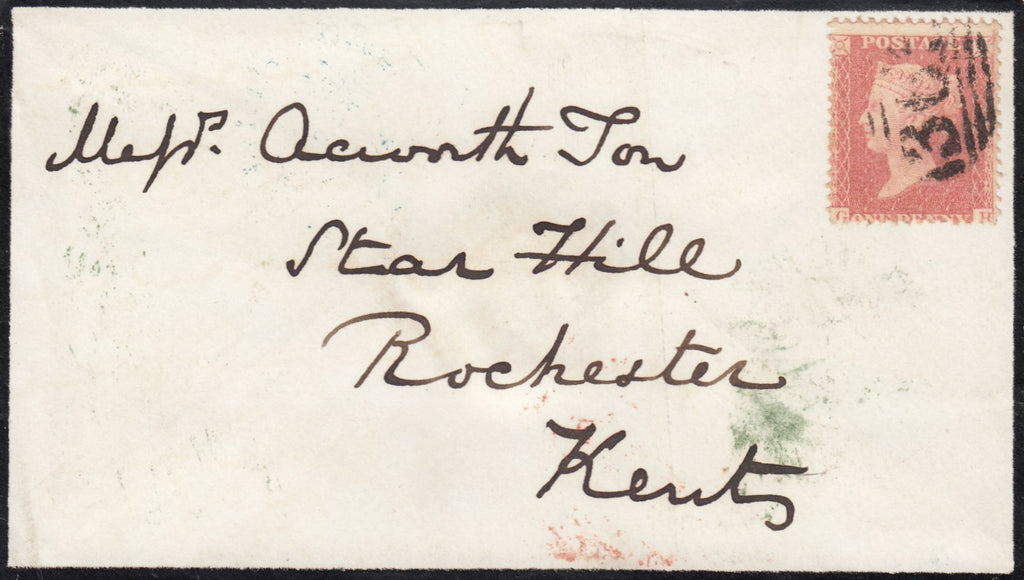 POSTA
36
G ONE PENNY H
Messrs. Acworth Son
Star Hill
Rochester
Kent